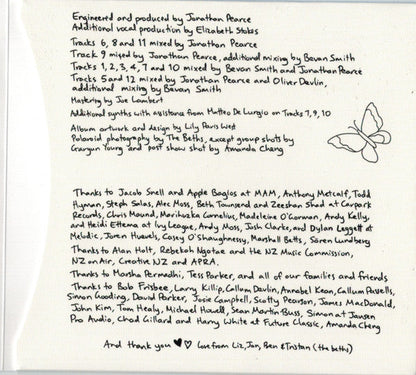 Engineered and produced by Jonathan Pearce
Additional vocal production by Elizabeth Stokes
Tracks 6, 8 and 11 mixed by Jonathan Pearce
Track 9 mixed by Jonathan Pearce, additional mixing by Bevan Smith
Tracks 1, 2, 3, 4, 7 and 10 mixed by Bevan Smith and Jonathan Pearce
Tracks 5 and 12 mixed by Jonathan Pearce and Oliver Devlin,
additional mixing by Bevan Smith
Mastering by Joe Lambert
Additional synths with assistance from Matteo De Lurgio on Tracks 7, 9, 10
Album artwork and design by Lily Paris West
Polaroid photography by The Beths, except group shots by
Young and post show shot by Amanda Cheng
Thanks to Jacob Snell and Apple Bagios at MAM, Anthony Metcalf, Todd
Hyman, Steph Salas, Alec Moss, Beth Townsend and Zeeshan Shad at Carpark
Records, Chris Mound, Cornelius, Madeleine O'Gorman, Andy Kelly,
and Heidi Ettema at Ivy League, Andy Moss, Josh Clarke, and Dylan Leggett at
Melodic, Joren Huevels, Casey O'Shaughnessy, Marshall Betts, Søren Lundberg
Thanks to Alan Holt, Rebekah Ngatae and the NZ Music Commission,
NZ on Air, Creative NZ and APRA.
Thanks to Marsha Permadhi, Tess Porker, and all of our families and friends
Thanks to Bob Frisbee, Larry Killip, Callum Devlin, Annabel Kean, Callum Passells,
Simon Gooding, David Parker, Josie Campbell, Scotty Pearson, James MacDonald,
John Kim, Tom Healy, Michael Howell, Sean Martin Buss, Simon at Jansen
Pro Audio, Chad Gillard and Harry White at Future Classic, Amanda Cheng
And thank you ♥♡ love from Liz, Jon, Ben & Tristan (the beths)